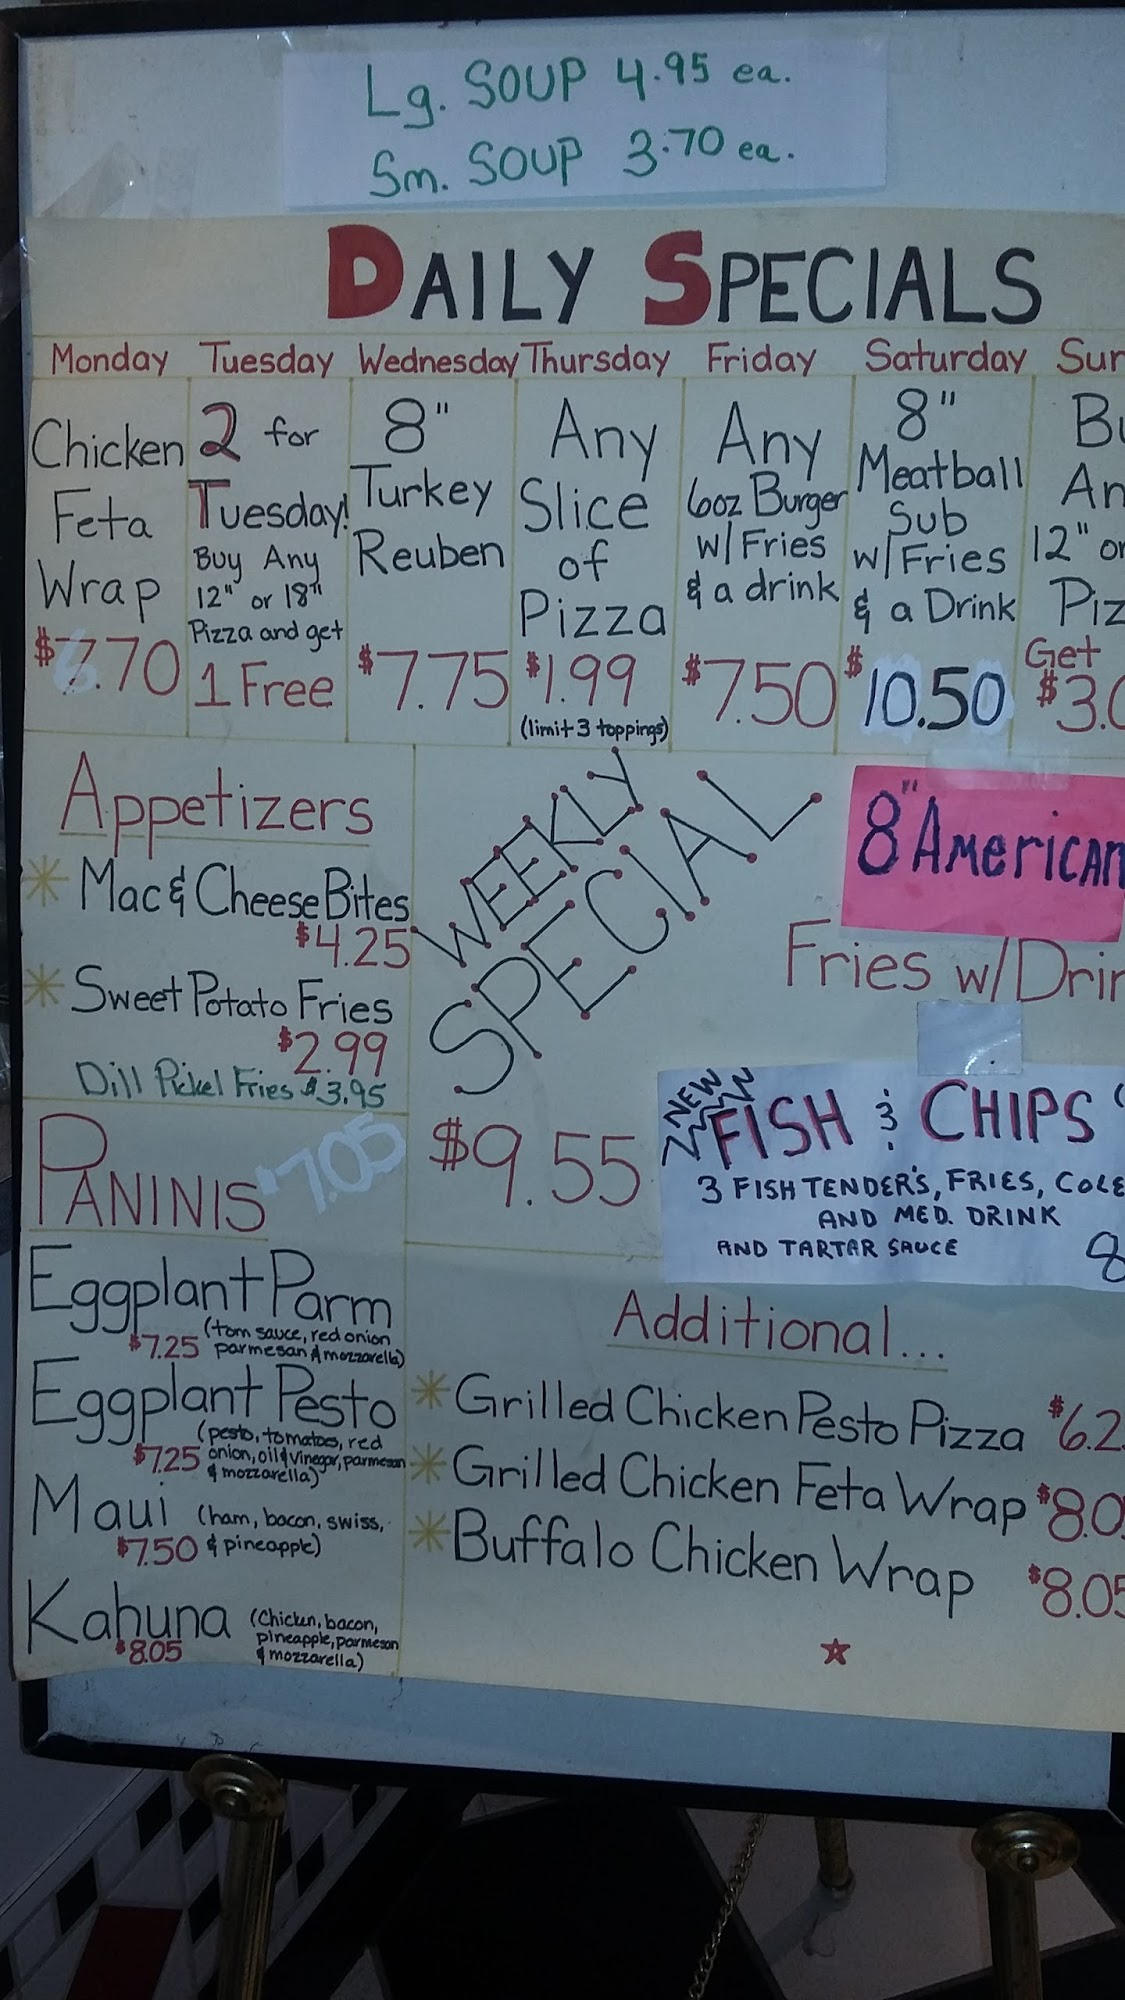 Lg. SOUP 4.95 ea.
Sm. SOUP 3.70 ea.
DAILY SPECIALS
Monday
Chicken
Feta
Wrap
$7.70
Tuesday
2 for
Tuesday!
Buy Any
12" or 18"
Pizza and get
1 Free
Wednesday
8"
Turkey
Reuben
$7.75
Thursday
Any
Slice
of
Pizza
$1.99
(limit 3 toppings)
Friday
Any
6oz Burger
w/ Fries
& a drink
$7.50
Saturday
8"
Meatball
Sub
w/ Fries
& a Drink
$10.50
12" or
Get
Appetizers
Mac & Cheese Bites
$4.25
Sweet Potato Fries
$2.99
Dill Pickel Fries $3.95
WEEKLY
SPECIAL
$9.55
8" American
Fries w/
NEW
FISH & CHIPS
3 FISH TENDER'S, FRIES, COLE
AND MED. DRINK
AND TARTAR SAUCE
PANINIS $7.05
Eggplant Parm
(tom sauce, red onion
$7.25 parmesan & mozzarella)
Eggplant Pesto
(pesto, tomatoes, red
$7.25 onion, oil & vinegar, parmesan
& mozzarella)
Maui (ham, bacon, swiss,
$7.50 & pineapple)
Kahuna (Chicken, bacon,
$8.05 pineapple, parmesan
& mozzarella)
Additional...
Grilled Chicken Pesto Pizza $6.2
Grilled Chicken Feta Wrap $8.0
Buffalo Chicken Wrap $8.05